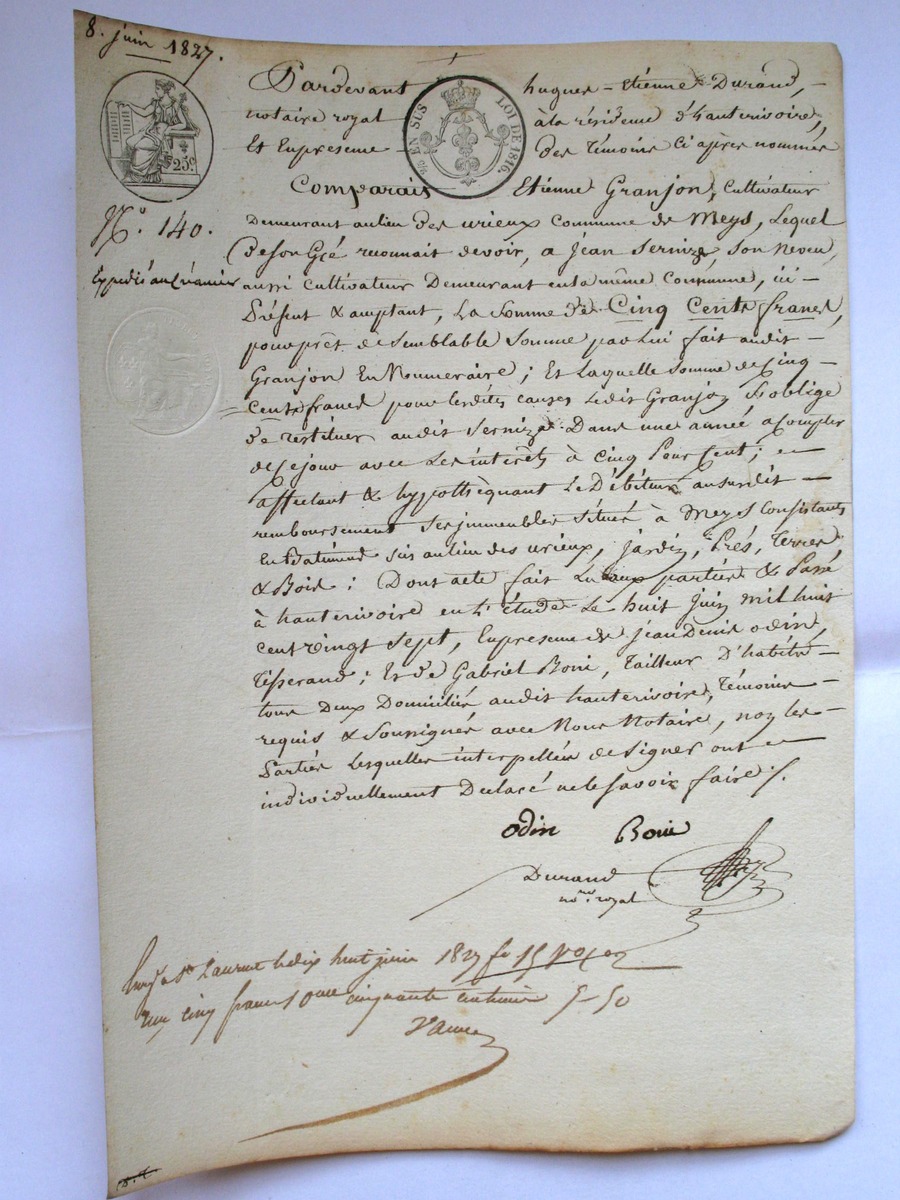 8. juin 1827.
Pardevant hugues-Etienne Durand,
notaire royal à la résidence d'hauterivoire,
Et En presence des témoins Ci après nommés
25 EN SUS LOI DE 1816.
25c.
Comparais Etienne Granjon, Cultivateur
Demeurant au lieu des urieux Commune de Meys, Lequel
N.o 140.
de son Gré reconnait devoir, a jean Sernize, Son Neveu,
Expédié au Créancier
aussi Cultivateur Demeurant en la même Commune, ici
Présent & acceptant, La Somme de Cinq Cents francs,
pour prêt de Semblable Somme par Lui fait audit
Granjon En Numeraire; Et Laquelle Somme de Cinq
Cents francs pour lesdites Causes Ledit Granjon S'oblige
de restituer audit Sernize Dans une année a Compter
de Ce jour avec Les intérêts à Cinq Pour Cent; en
affectant & hypothèquant Le Débiteur au susdit
remboursement Ses immeubles Situés à Meys Consistants
En Batiments Sis au lieu des urieux, jardin, Prés, terres
& Bois: Dont acte fait Lu aux parties & Passé
à hauterivoire en L'étude Le huit juin mil huit
Cent vingt Sept, En presence de jean Denis Odin,
tisserand; Et de Gabriel Boni, tailleur D'habits
tous Deux Domiciliés audit hauterivoire, témoins
requis & Soussignés avec Nous Notaire, non les
Parties Lesquelles interpellées de Signer ont
individuellement Declaré ne le Savoir faire ./.
Odin Boni
Durand
no.re royal
St Laurent le dix huit juin 1827 fo 15
cinq francs cinquante centimes 5-50